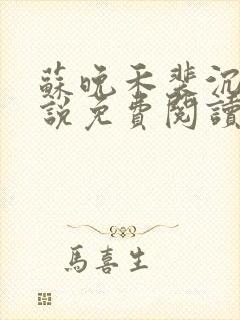 蘇晚禾裴沉
說免費閱讀
馬喜生